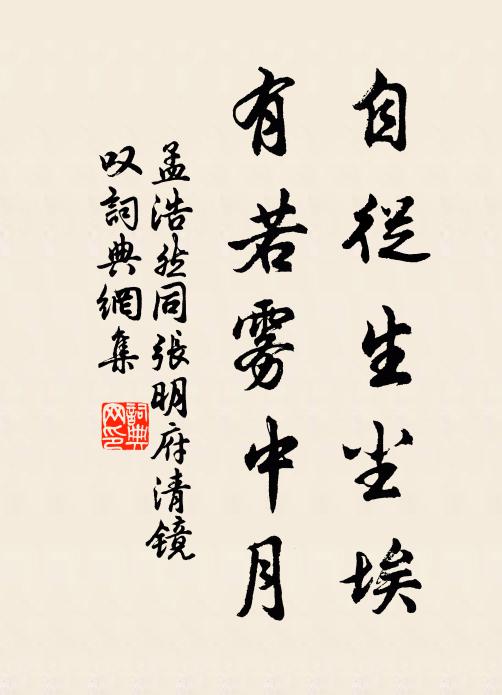 自從生尘埃
有若雾中月
孟浩然同張明府清鏡
叹詞典網集
詞典网印